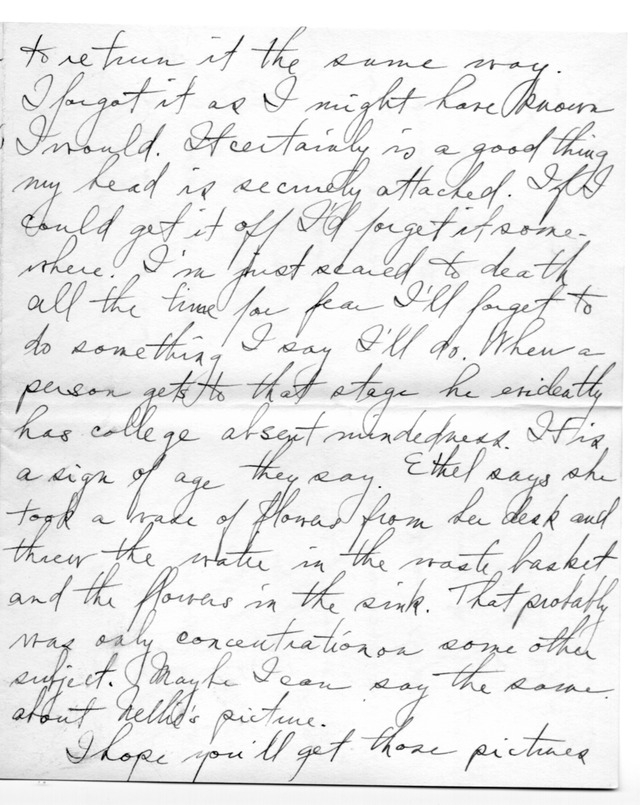 to return it the same way.
I forgot it as I might have known
I would. It certainly is a good thing
my head is securely attached. If I
could get it off I'd forget it some-
where. I'm just scared to death
all the time for fear I'll forget to
do something I say I'll do. When a
person gets to that stage he evidently
has college absent mindedness. It is
a sign of age they say. Ethel says she
took a vase of flowers from her desk and
threw the water in the waste basket
and the flowers in the sink. That probably
was only concentration on some other
subject. Maybe I can say the same
about Nellie's picture.
I hope you'll get those pictures